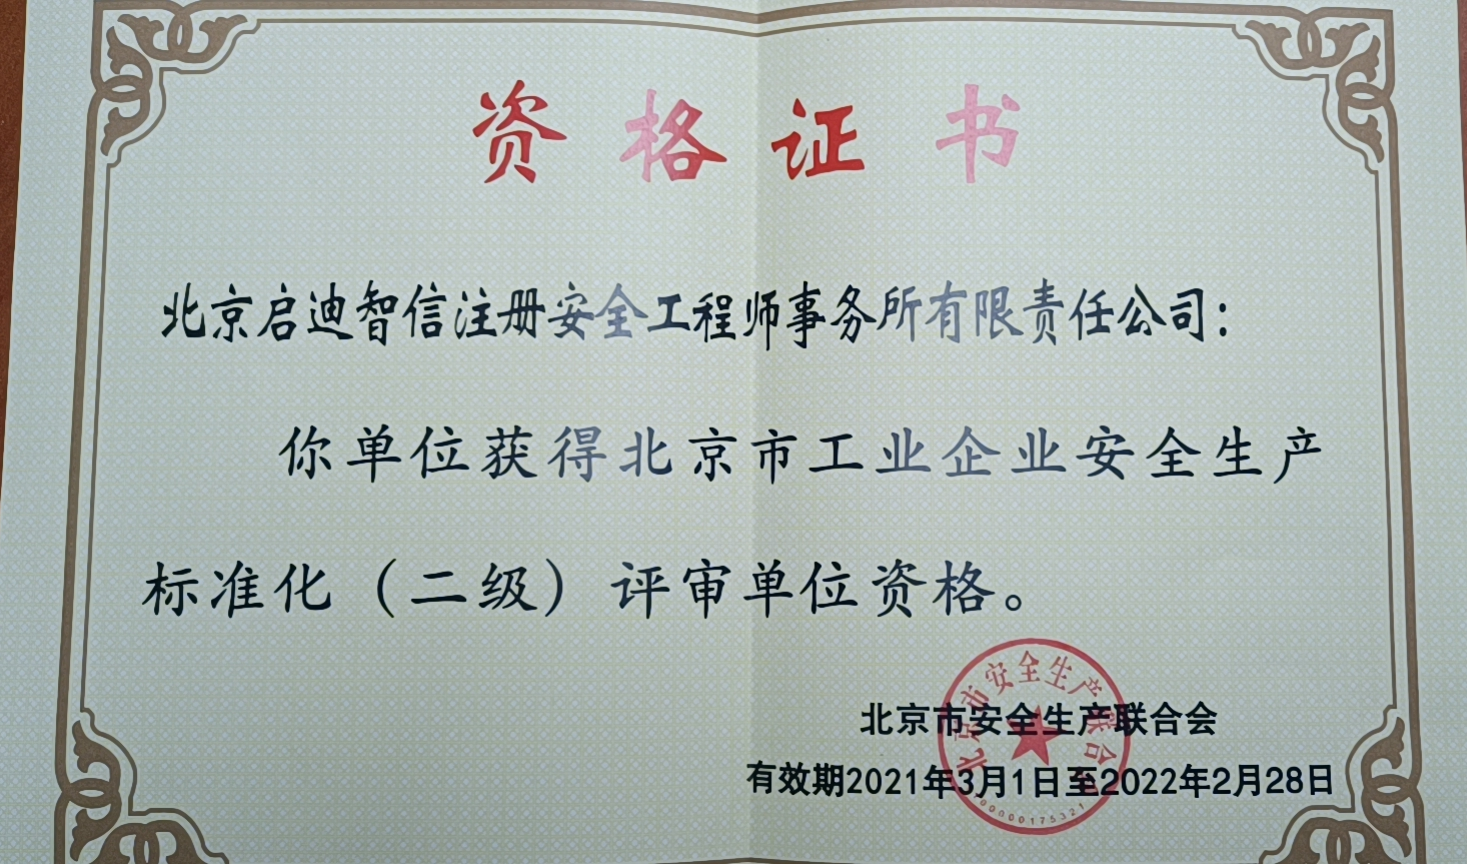 资格证书
北京启迪智信注册安全工程师事务所有限责任公司：
你单位获得北京市工业企业安全生产
标准化（二级）评审单位资格。
北京市安全生产联合会
北京市安全生产联合会
有效期2021年3月1日至2022年2月28日